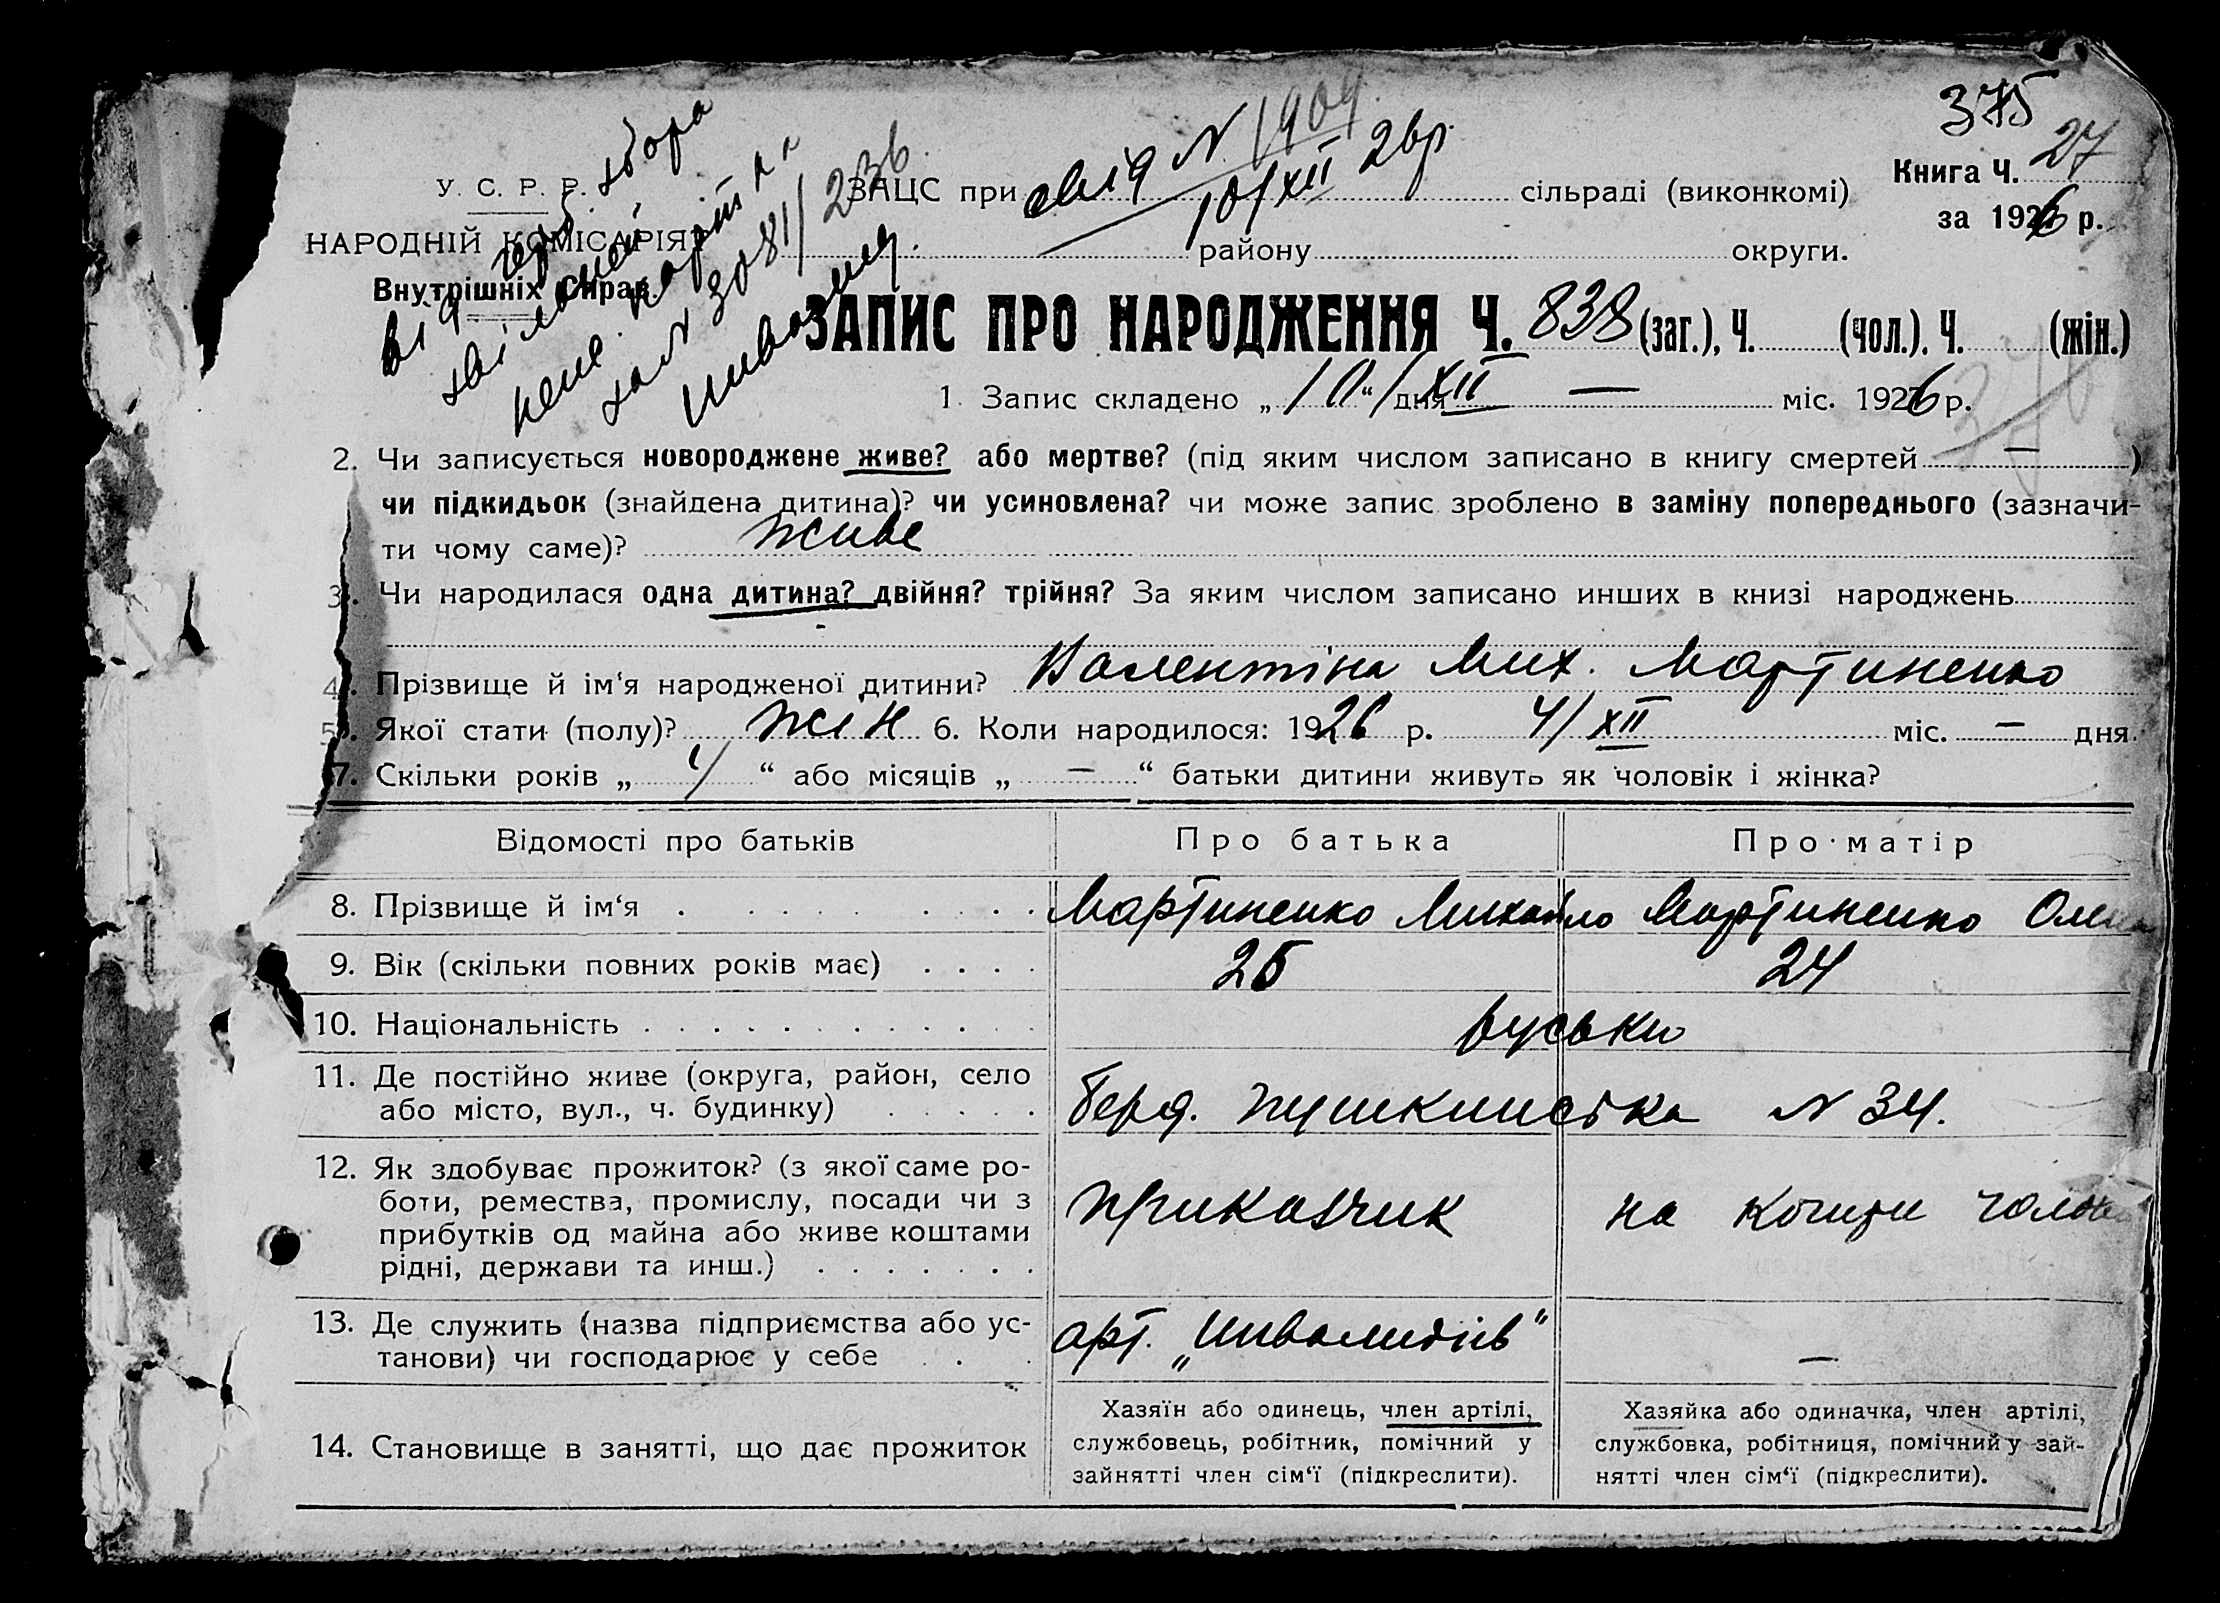 375
Книга Ч. 27
за 1926 р.
У. С. Р. Р.
НАРОДНІЙ КОМІСАРІЯТ
Внутрішніх Справ
від герб. збора
звільнений
хал 3081/236.
ЗАЦС при свід N 1904 10/XII 26р. сільраді (виконкомі)
району округи.
ЗАПИС ПРО НАРОДЖЕННЯ Ч. 838 (заг.), Ч. (чол.). Ч. (жін.)
1. Запис складено „10“/ дня XII — міс. 1926 р.
2. Чи записується новороджене живе? або мертве? (під яким числом записано в книгу смертей — )
чи підкидьок (знайдена дитина)? чи усиновлена? чи може запис зроблено в заміну попереднього (зазначи-
ти чому саме)? живе
3. Чи народилася одна дитина? двійня? трійня? За яким числом записано инших в книзі народжень
4. Прізвище й ім‘я народженої дитини? Валентіна Мих. Мартиненко
5. Якої стати (полу)? жін 6. Коли народилося: 1926 р. 4/XII міс. — дня.
7. Скільки років „ “ або місяців „ — “ батьки дитини живуть як чоловік і жінка?
Відомості про батьків Про батька Про матір
8. Прізвище й ім‘я Мартиненко Михайло Мартиненко
9. Вік (скільки повних років має) 25 24
10. Національність руськи
11. Де постійно живе (округа, район, село
або місто, вул., ч. будинку) Берд. Пушкинська N 34.
12. Як здобуває прожиток? (з якої саме ро-
боти, ремества, промислу, посади чи з
прибутків од майна або живе коштами
рідні, держави та инш.) приказчик на кошти
13. Де служить (назва підприємства або ус-
танови) чи господарює у себе арт. „Инвалидів“ —
14. Становище в занятті, що дає прожиток
Хазяїн або одинець, член артілі,
службовець, робітник, помічний у
зайнятті член сім‘ї (підкреслити).
Хазяйка або одиначка, член артілі,
службовка, робітниця, помічний у зай-
нятті член сім‘ї (підкреслити).